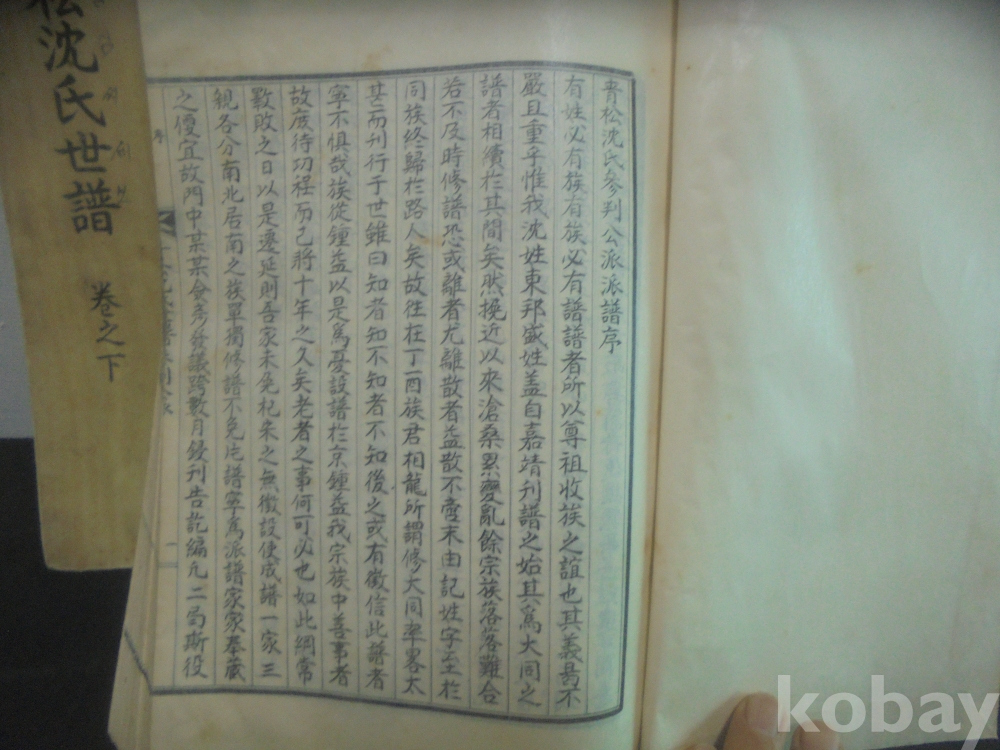 靑松沈氏參判公派派譜序
有姓必有族有族必有譜譜者所以尊祖收族之誼也其義曷不
嚴且重乎惟我沈姓東邦盛姓盖自嘉靖刊譜之始其爲大同之
譜者相續於其間矣然挽近以來滄桑累變亂餘宗族落落難合
若不及時修譜恐或離者尤離散者益散不啻末由記姓字至於
同族終歸於路人矣故徃在丁酉族君相龍所謂修大同率畧太
甚而刊行于世雖曰知者知不知者不知後之或有徵信此譜者
寧不惧哉族從鍾益以是爲憂設譜於京鍾益我宗族中善事者
故度待功程而已將十年之久矣老者之事何可必也如此綱常
斁敗之日以是遷延則吾家未免杞宋之無徵設使成譜一家三
親各分南北居南之族單獨修譜不免片譜寧爲派譜家家奉藏
之優宜故門中某某僉彦發議跨數月鋟刊告訖編凡二局斯役
序
一
松沈氏世譜 卷之下
kobay